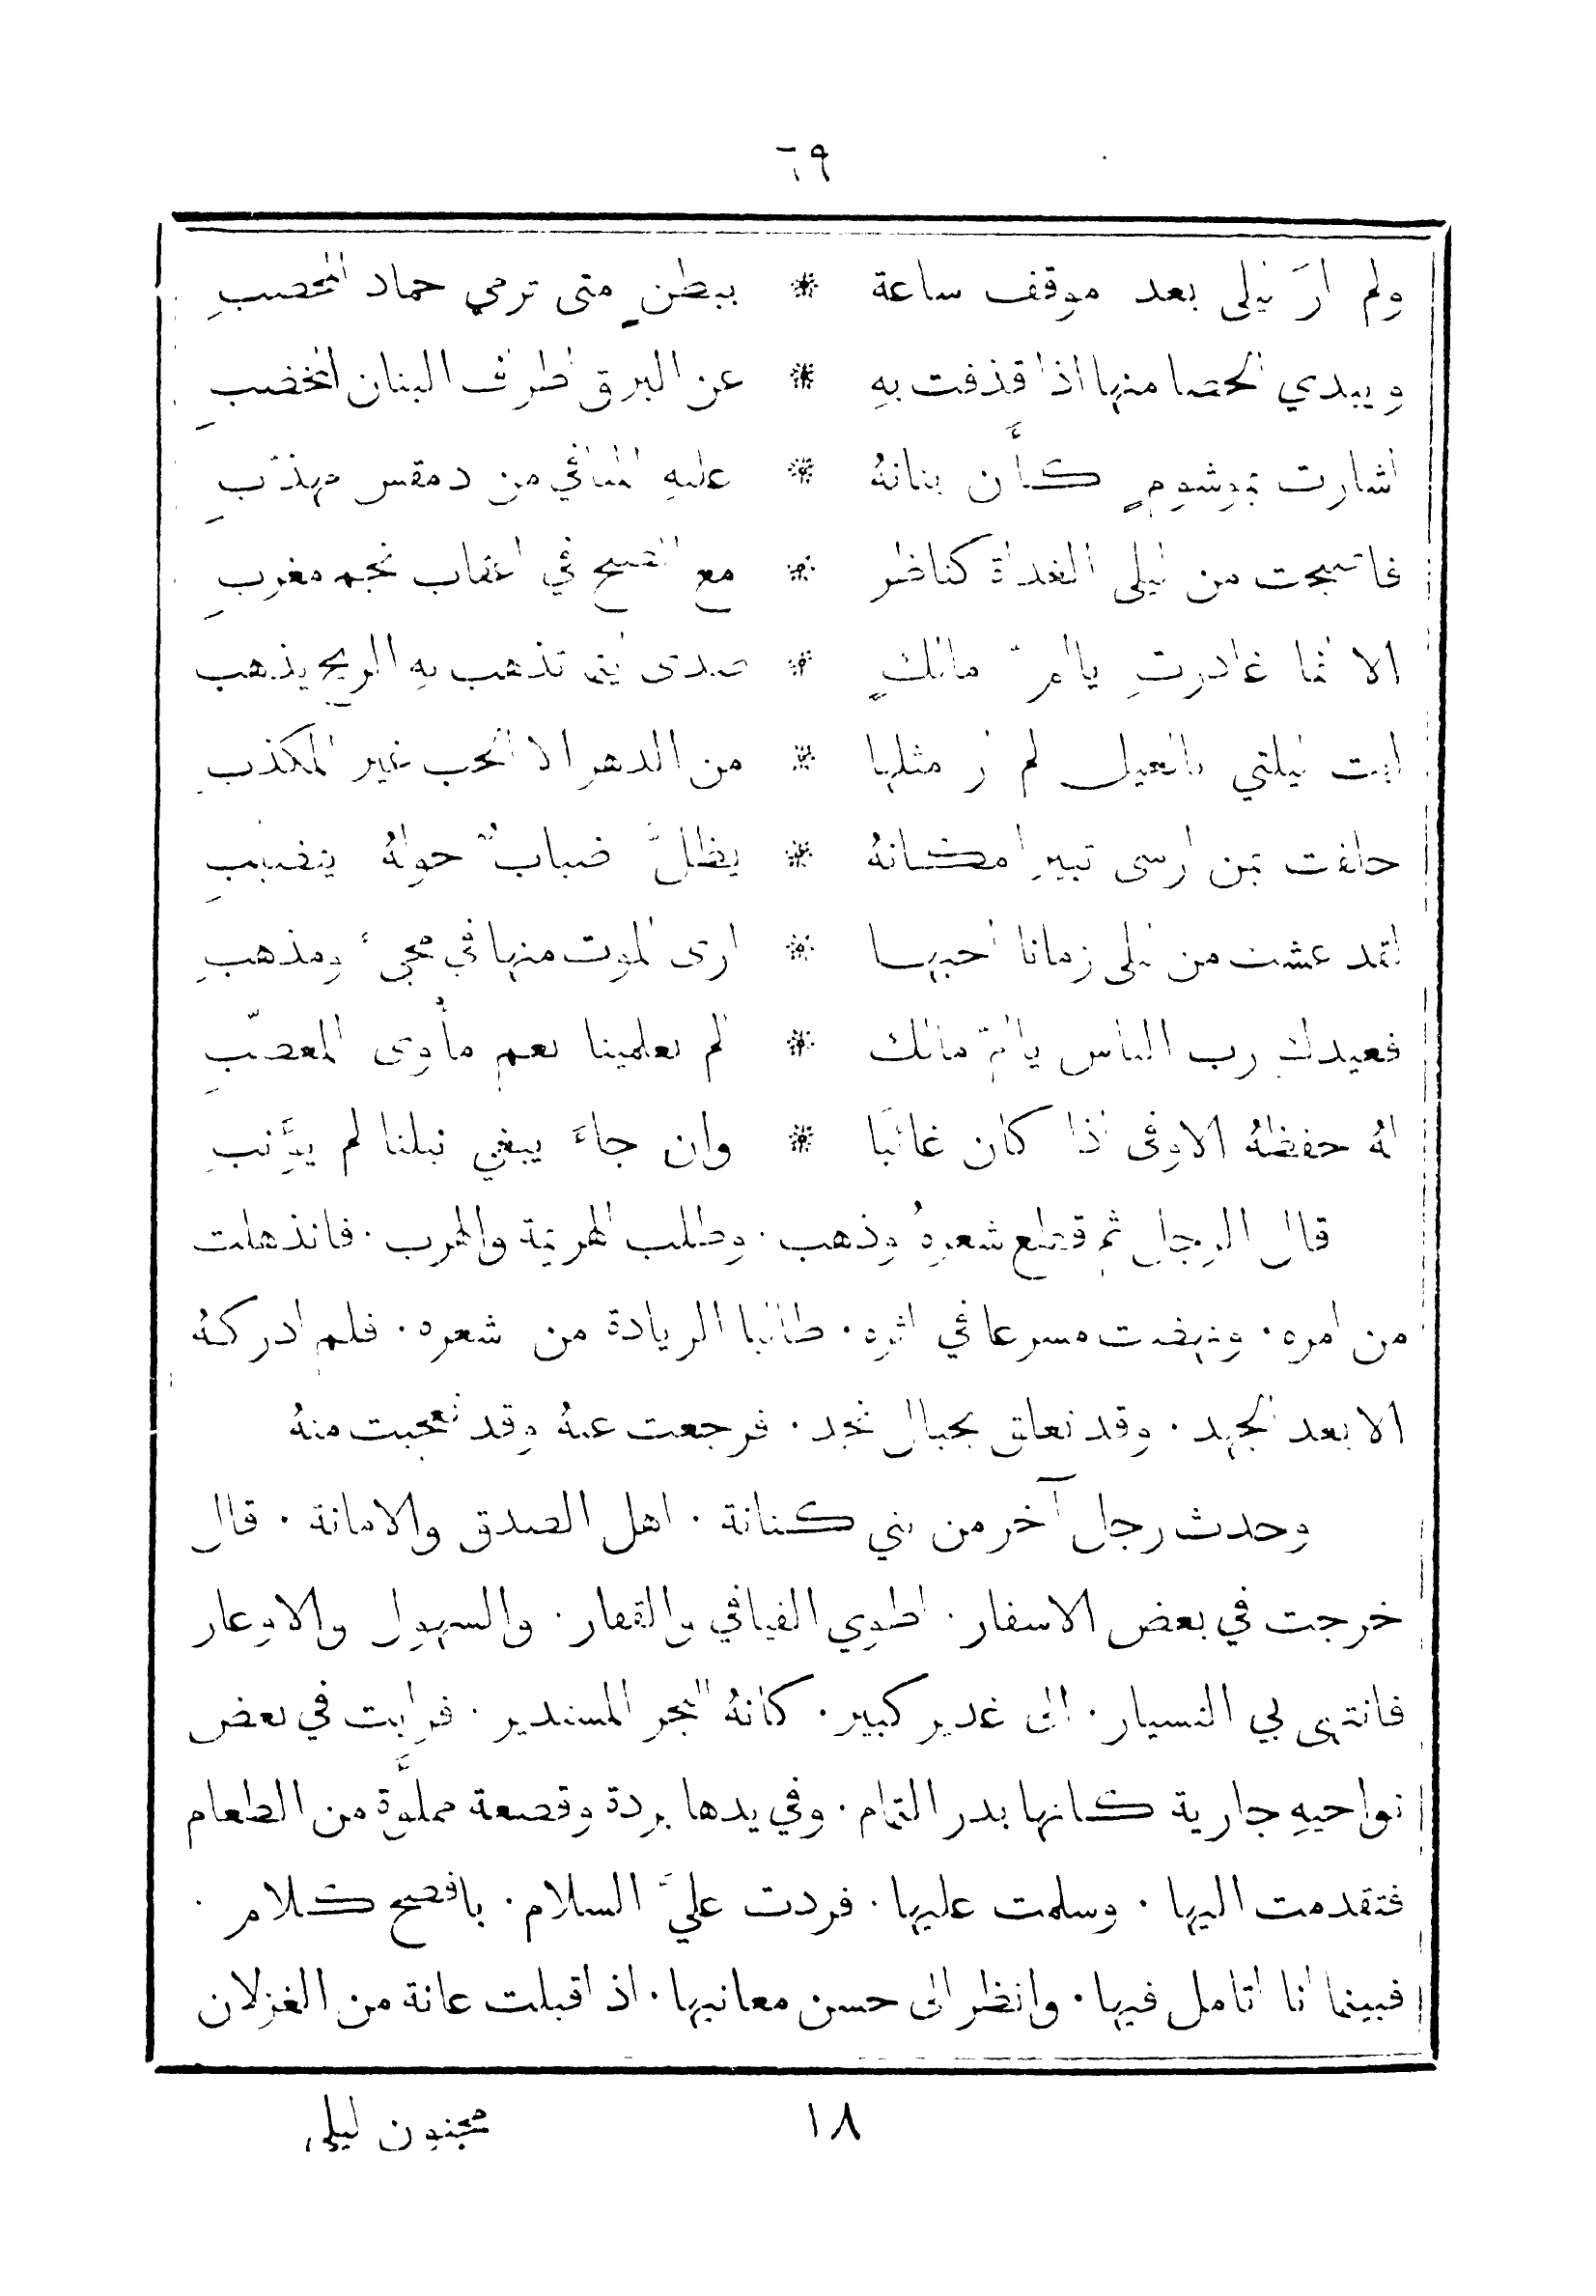 ٦٩
ولم ارَ ليلى بعد موقف ساعة * ببطنِ متى ترمي حماد المحصبِ
ويبدي الحصا منها اذا قذفت بهِ * عن البرق اطراف البنان المخضبِ
اشارت بموشومٍ كأَن بنانهُ * عليهِ اللثافي من دمقس مهذّبِ
فاصبحت من ليلى الغداة كناظر * مع الصبح في اعقاب نجم مغربِ
الا انما غادرتِ يا امّ مالكٍ * صدى اينما تذهب به الريح يذهب
ابت ليلتي بالغيل لم ارَ مثلها * من الدهر الا الحب غير المكذبِ
حلفت بمن ارسى ثبيرا مكانهُ * يظلُّ ضبابٌ حولهُ يتضببِ
لقد عشت من ليلى زمانا احبها * ارى الموت منها في مجيءٍ ومذهبِ
فعيدك رب الناس يا امّ مالك * الم تعلمينا نعم مأوى المعصّبِ
لهُ حفظهُ الاوفى اذا كان غائبًا * وان جاءَ يبغي نيلنا لم يؤَنبِ
قال الرجل ثم قطع شعرهُ وذهب. وطلب الهزيمة والهرب. فانذهلت
من امره. ونهضت مسرعا في اثره. طالبا الزيادة من شعره. فلم ادركهُ
الا بعد الجهد. وقد تعلق بجبال نجد. فرجعت عنهُ وقد تعجبت منهُ
وحدث رجل آخر من بني كنانة. اهل الصدق والامانة. قال
خرجت في بعض الاسفار. اطوي الفيافي والقفار. والسهول والاوعار
فانتهى بي التسيار. الى غدير كبير. كانهُ البحر المستدير. فرايت في بعض
نواحيهِ جارية كانها بدر التمام. وفي يدها بردة وقصعة مملوَّة من الطعام
فتقدمت اليها. وسلمت عليها. فردت عليَّ السلام. بافصح كلام.
فبينما انا اتامل فيها. وانظر الى حسن معانيها. اذ اقبلت عانة من الغزلان
١٨ مجنون ليلى